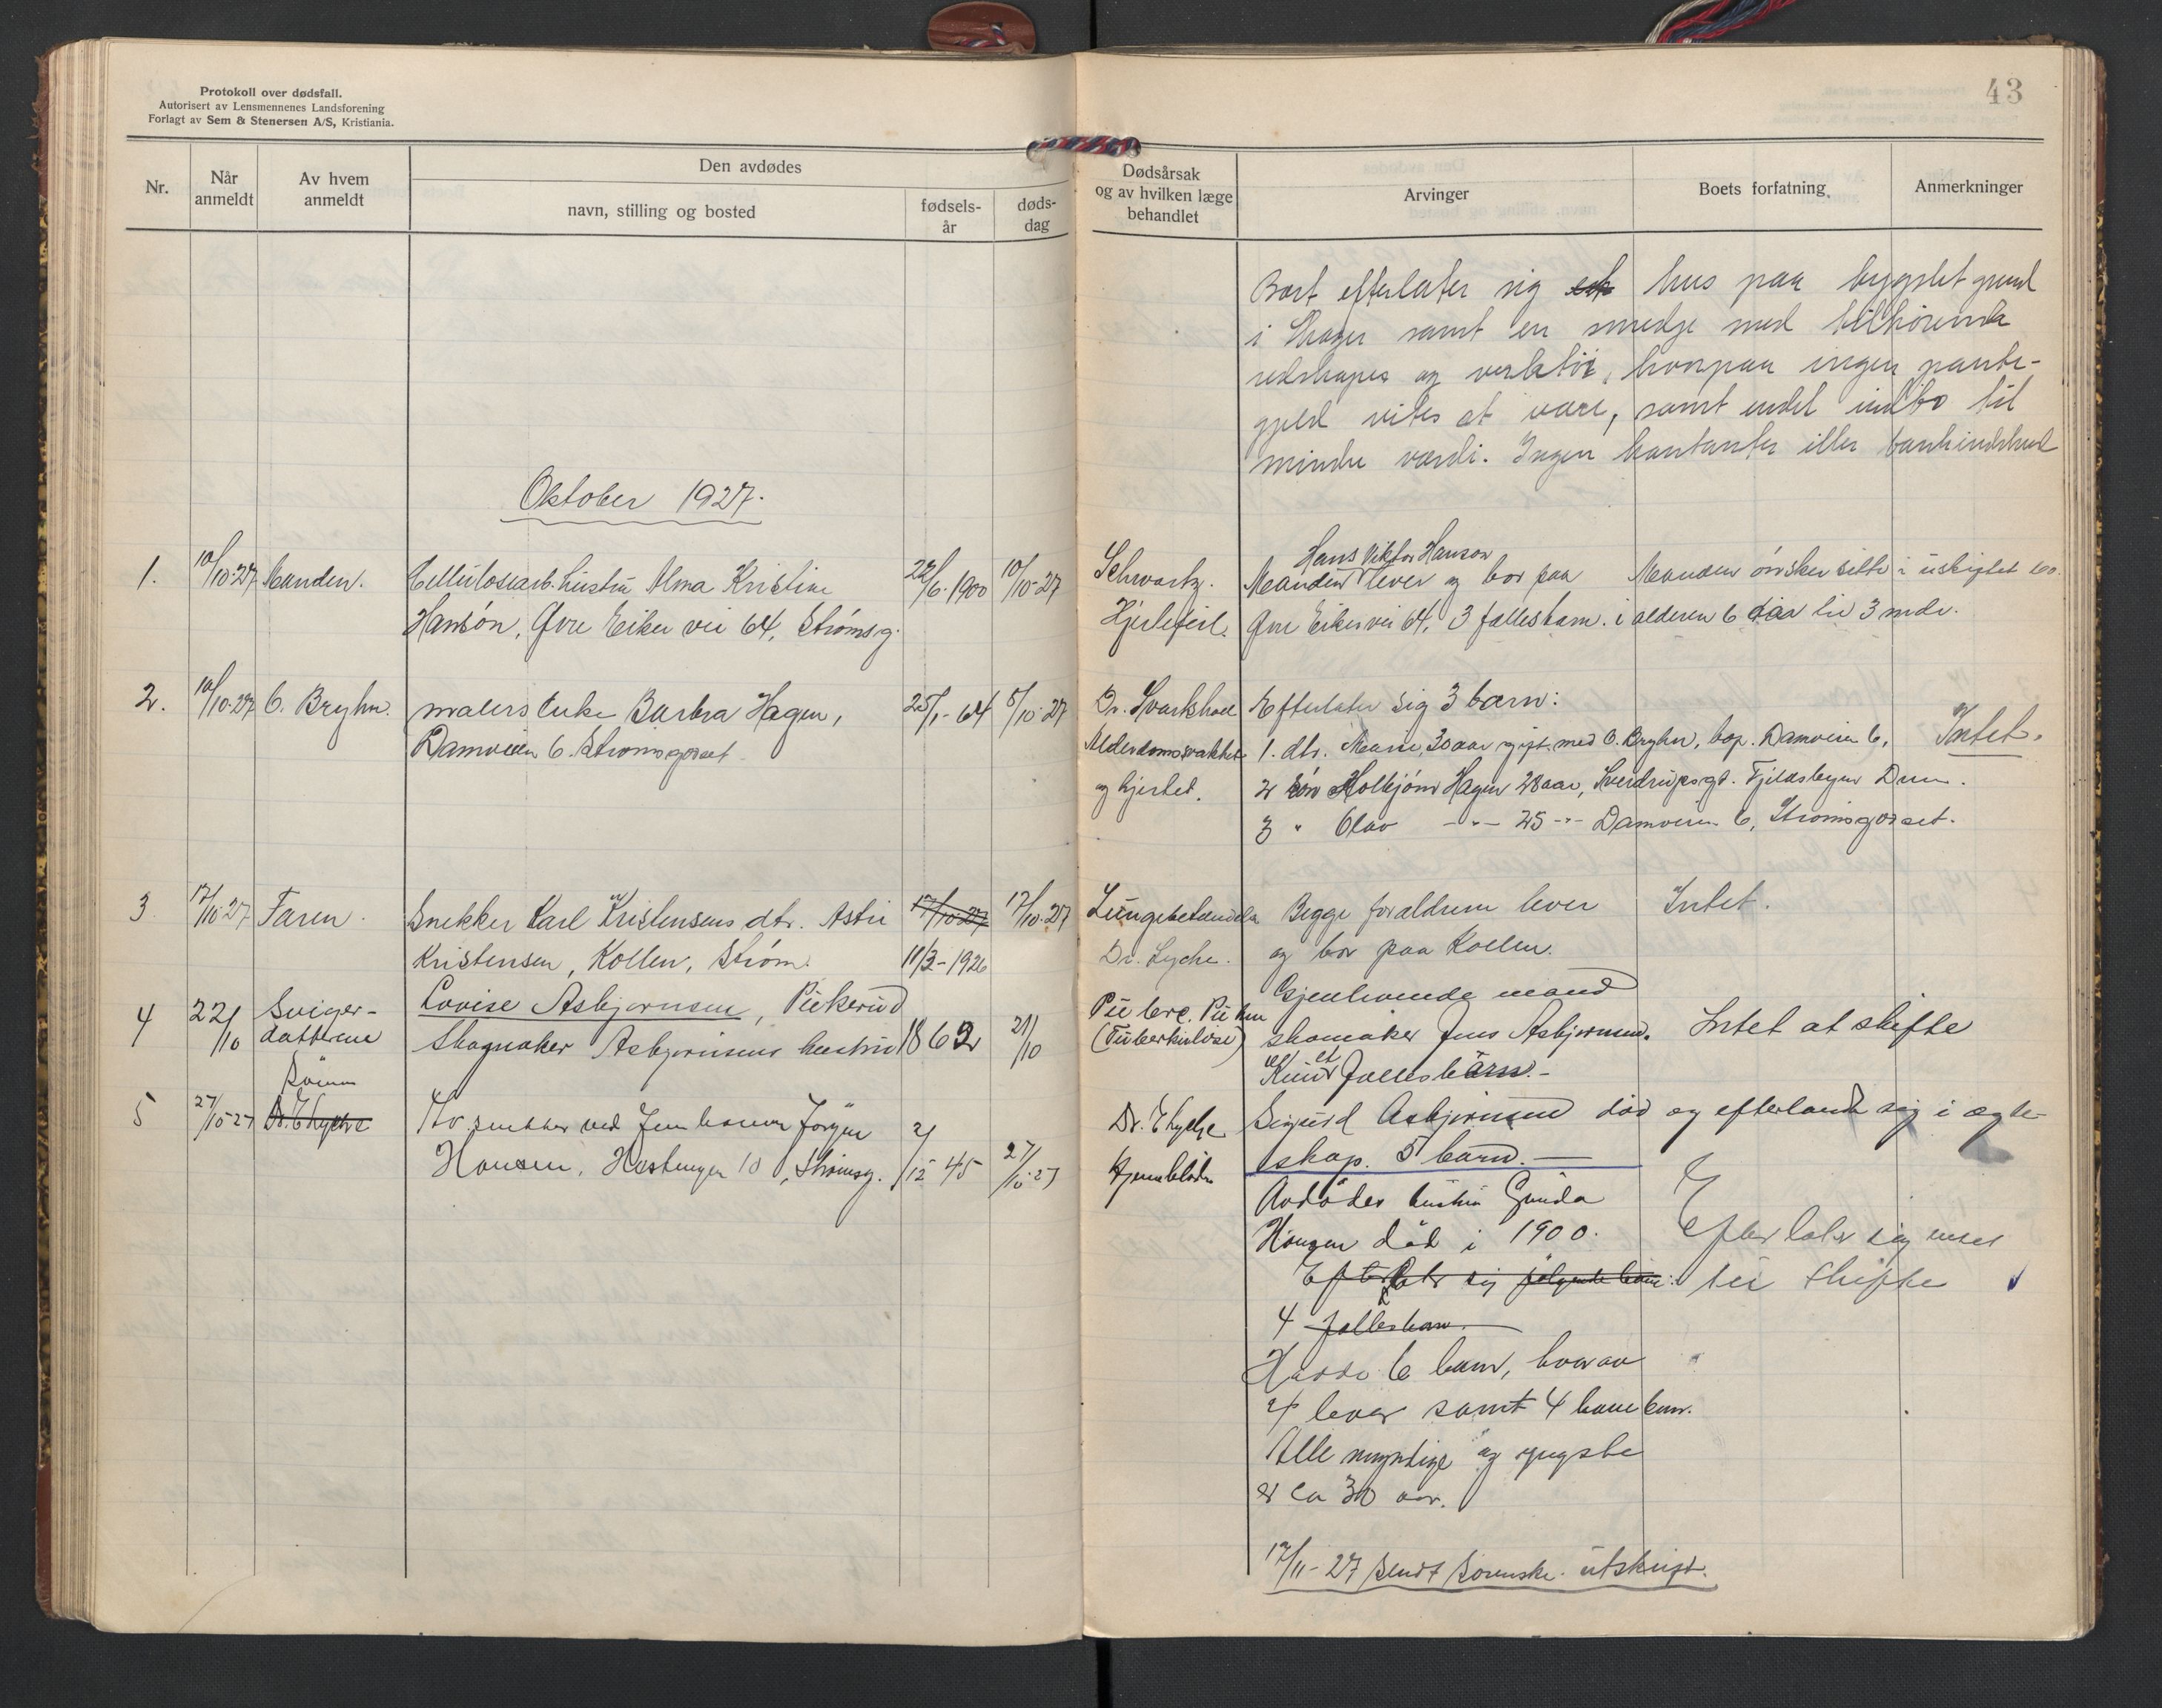 Protokoll over dødsfall.
Autorisert av Lensmennenes Landsforening
Forlagt av Sem & Stenersen A/S, Kristiania.
43
Nr.
Når anmeldt
Av hvem anmeldt
Den avdødes
navn, stilling og bosted
fødsels-år
døds-dag
Dødsårsak og av hvilken læge behandlet
Arvinger
Boets forfatning
Anmerkninger
efterlater sig hus paa bygslet grund
i samt en smedje med tilhørende
redskaper og verktøi, hvorpaa ingen pante-
gjeld vites at være, samt endel indbo til
mindre værdi. Ingen kontanter eller bankindskud
Oktober 1927.
1. 10/10-27 Manden. Cellulosearb. hustru Alma Kristine 22/6-1900 10/10-27 Schwartz. Hans Viktor Hanson
Manden lever og bor paa Manden ønsker sitte i uskiftet bo.
Hansøn, Øvre Eiker vei 64, Strømsg. Hjertefeil. Øvre Eikervei 64, 3 fællesbarn. i alderen 6 aar til 3 mdr.
2. 10/10-27 O. Bryhn. malers enke Barbra Hagen, 25/1-64 8/10-27 Dr. Svartskog Efterlater sig 3 barn:
Damveien 6. Strømsgodset Alderdomssvakhet 1. dtr. Marie, 30 aar gift med O. Bryhn, bop. Damveien 6, Intet.
og hjertet. 2 søn Holbjørn Hagen 28 aar, Sverdrupsgt. Fjeldsbyen Drm.
3 " Olav -"- 25 -"- Damveien 6, Strømsgodset.
3 17/10-27 Faren. Snekker Karl Kristensens dtr. Astri 17/10-27 17/10-27 Lungebetændelse Begge forældrene lever Intet.
Kristensen, Kollen, Strøm. 11/3-1926 Dr. Lyche. og bor paa Kollen.
4 22/10 Sviger-datteren Lovise Asbjørnsen, Pukerud Gjenlevende mand
Skomaker Asbjørnsens hustru 1862 21/10 (Tuberkulose) skomaker Jens Asbjørnsen. Intet at skifte
Kun et Fællesbarn.-
Sigurd Asbjørnsen død og efterlandt sig i ægte-
skap. 5 barn.-
5 27/10-27 Sønnen Dr. E Lyche Fhv. snekker ved Jernbanen Jørgen Dr. E Lyche
Hansen, Haslungen 10, Strømsg. 2/12 45 27/10-27 Hjerneblødn
Avdødes hustru Gunda
død i 1900. Efterlater sig intet
Efterlater sig følgende barn: til skifte
4 fællesbarn.
Hadde 6 barn, hvorav
4 lever samt 4 barnebarn.
Alle myndige og yngste
er ca 30 aar.
17/11-27 sendt Sorenskr. utskrift.